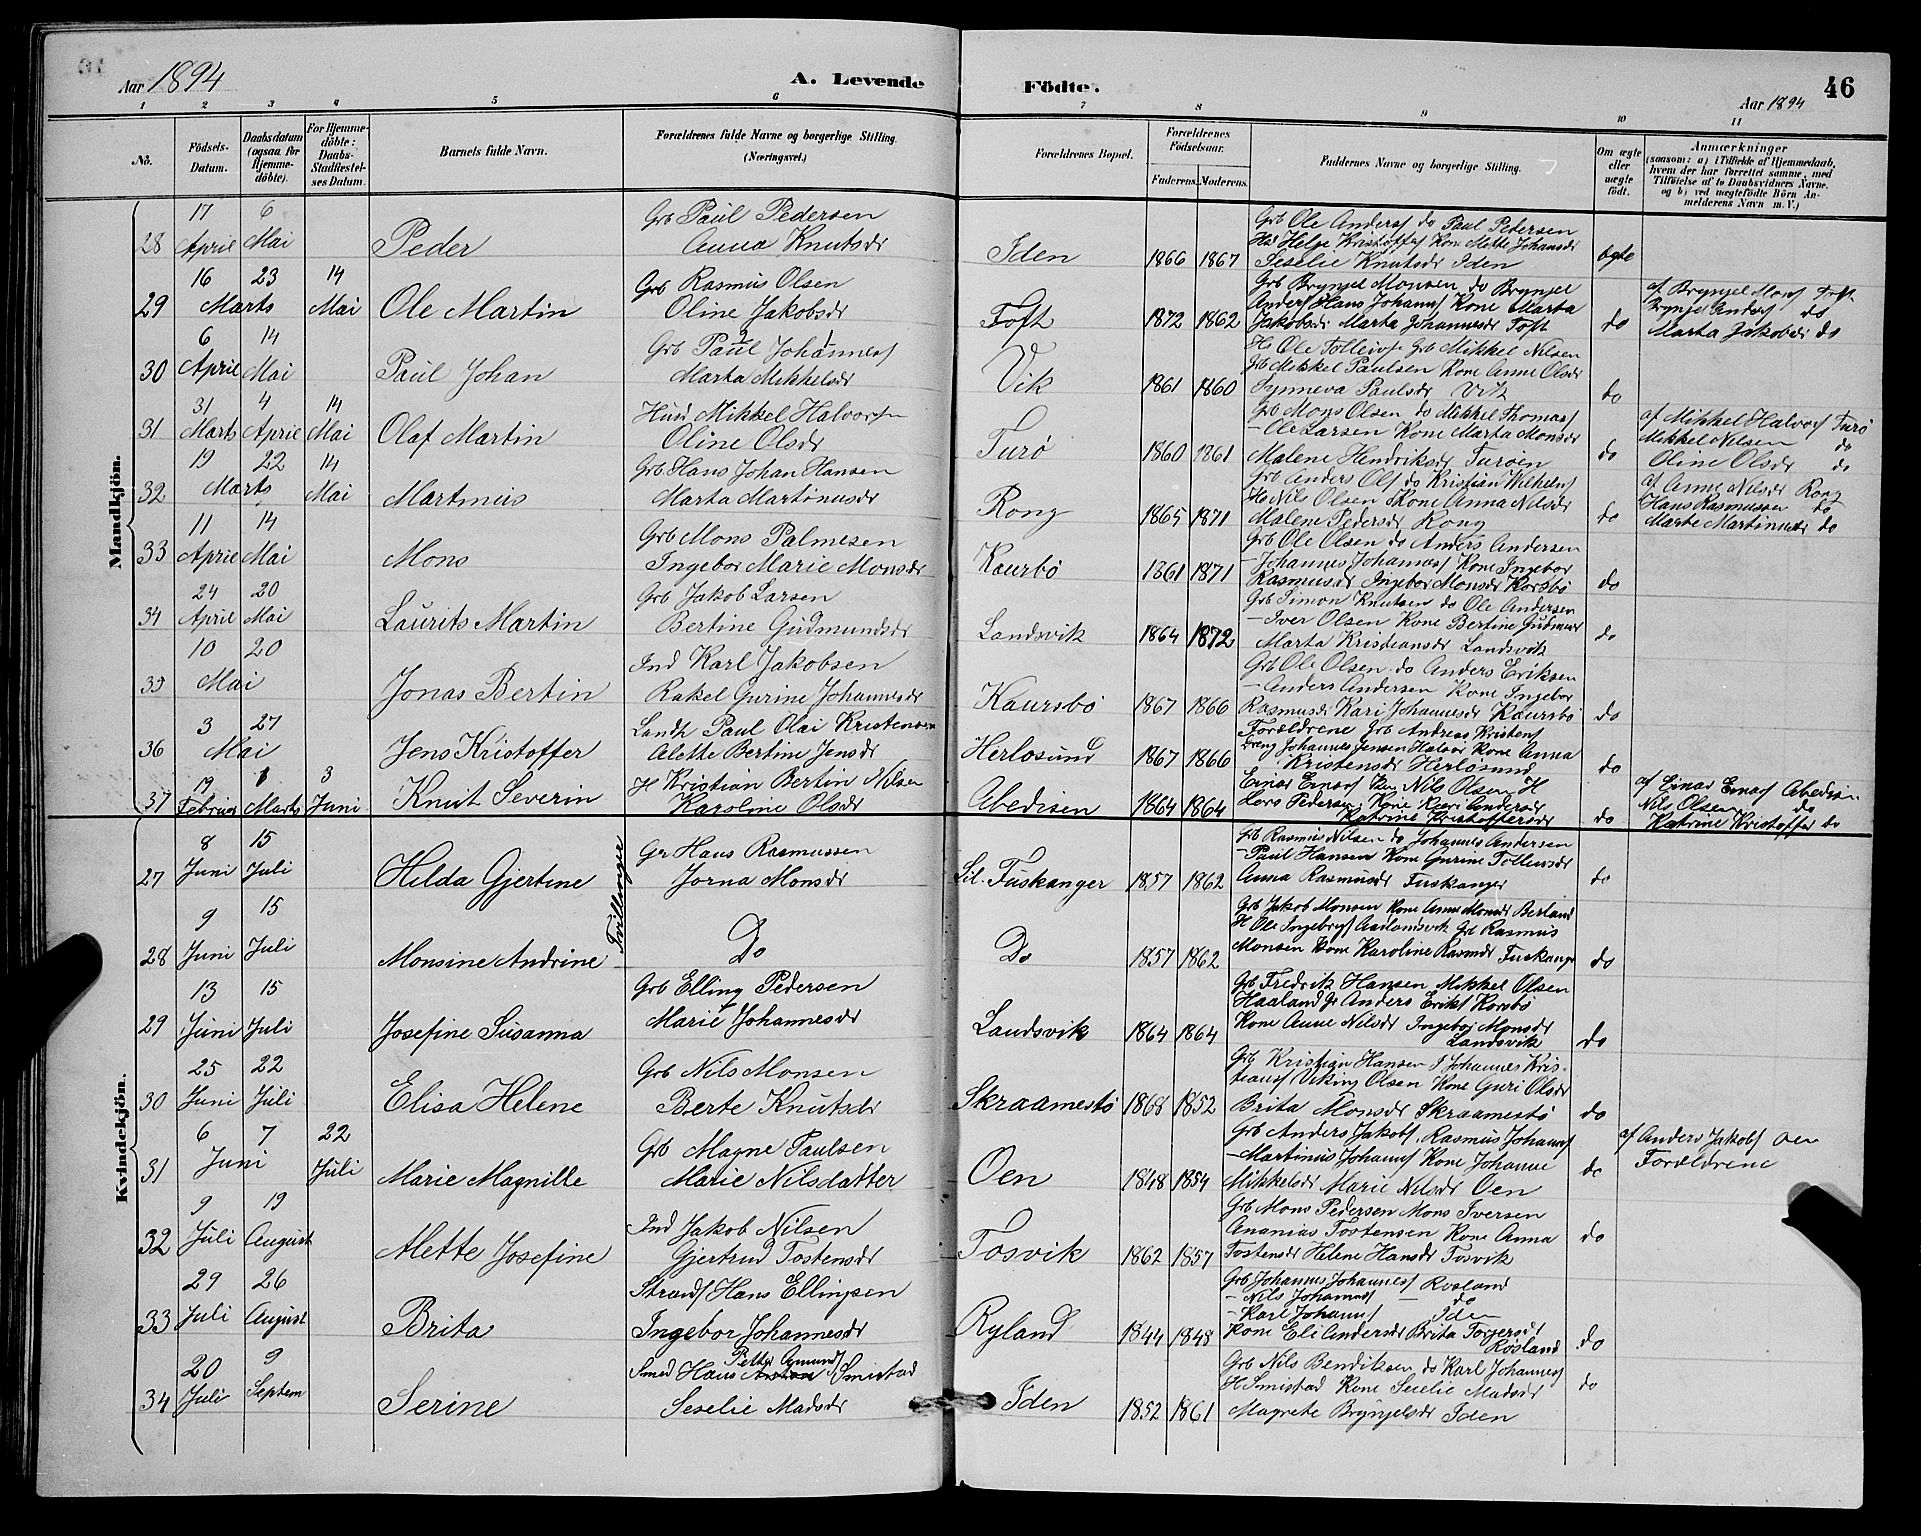 Aar 1894
A. Levende
Födte.
Aar 1894
46
1 2 3 4 5 6 7 8 9 10 11
No.
Födsels-Datum.
Daabsdatum (ogsaa for Hjemme-döbte).
For Hjemme-döbte: Daabs-Stadfæstel-ses Datum.
Barnets fulde Navn.
Forældrenes fulde Navne og borgerlige Stilling. (Næringsvei.)
Forældrenes Bopæl.
Forældrenes Födselsaar.
Faderens. Moderens.
Faddernes Navne og borgerlige Stilling.
Om ægte eller uægte födt.
Anmærkninger
(saasom: a) i Tilfælde af Hjemmedaab, hvem der har forrettet samme, med Tilföielse af to Daabsvidners Navne. og b) ved uægtefödte Börn An-melderens Navn m. V.)
Mandkjön.
28 17 April 6 Mai Peder
Grb Paul Pedersen
Anna Knutsdr
Iden 1866 1867
Grb Ole Anders/ do Paul Pedersen
Hs Helge Kristoffers/ Kone Mette Johansdr
Seselie Knutsdr Iden
ægte
29 16 23 Marts 14 Mai Ole Martin
Grb Rasmus Olsen
Oline Jakobsdr
Toft 1872 1862
Grb Brynjel Monsen do Brynjel
Anders/ Hans Johann/ Kone Marta
Jakobsdr Marta Johannesdr Toft
do
af Brynjel Mons/ Toft
Brynjel Anders/ do
Marta Jakobsdr do
30 6 April 14 Mai Paul Johan
Grb Paul Johannes/
Marta Mikkelsdr
Vik 1861 1860
Hs Ole Tolleivs/ Grb Mikkel Nilsen
Grb Mikkel Paulsen Kone Anne Olsdr
Synneva Paulsdr Vik
do
31 31 Marts 4 April 14 Mai Olaf Martin
Husm Mikkel Halvorsen
Oline Olsdr
Turø 1860 1861
Grb Mons Olsen do Mikkel Thomas/
- Ole Larsen Kone Marta Monsdr
Malene Hendriksdr Turøen
do
af Mikkel Halvors/ Turø
Mikkel Nilsen do
Oline Olsdr do
32 19 22 Marts 14 Mai Martinus
Grb Hans Johan Hansen
Marta Martinusdr
Rong 1865 1871
Grb Anders Ols/ do Kristian Wilhelm/
Hs Nils Olsen Kone Anna Nilsdr
Malene Pedersdr Rong
do
af Anne Nilsdr Rong
Hans Rasmussen do
Marte Martinusdr do
33 11 April 14 Mai Mons
Grb Mons Palmesen
Ingebor Marie Monsdr
Kaurbø 1861 1871
Grb Ole Olsen do Anders Andersen
- Johannes Johannes/ Kone Ingebor
Rasmusdr Ingebor Monsdr Korsbø
do
34 24 April 20 Mai Laurits Martin
Grb Jakob Larsen
Bertine Gudmundsdr
Landsvik 1864 1872
Grb Simon Knutsen do Ole Andersen
- Iver Olsen Kone Bertine Gudmundr
Marta Kristiansdr Landsvik
do
35 10 20 Mai Jonas Bertin
Ind Karl Jakobsen
Rakel Gurine Johannesdr
Kaursbø 1867 1866
Grb Ole Olsen do Anders Eriksen
- Anders Andersen Kone Ingebor
Rasmusdr Kari Johannesdr Kaursbø
do
36 3 27 Mai Jens Kristoffer
Landh Paul Olai Kristensen
Alette Bertine Jensdr
Herlosund 1867 1866
Forældrene Grb Andreas Kristen/
Dreng Johannes Jensen Halvor Kone Anna
Kristensdr Herløsund
do
37 19 Februar 1 Marts 3 Juni Knut Severin
H Kristian Bertin Nilsen
Karoline Olsdr
Abedisen 1864 1864
Einar Einars/ Nils Olsen H
Lars Pedersen Kone Kari Andersdr
Katrine Kristoffersdr
do
af Einar Einars/ Abedisen
Nils Olsen do
Katrine Kristoffer do
Kvindekjön.
27 8 Juni 15 Juli Hilda Gjertine
Tvillinger
Gr Hans Rasmussen
Jorna Monsdr
Lil. Fuskanger 1857 1862
Grb Rasmus Nilsen do Johannes Andersen
- Paul Hansen Kone Gurine Tollevsdr
Anna Rasmusdr Fuskanger
do
28 9 Juni 15 Juli Monsine Andrine
Do
Do 1857 1862
Grb Jakob Monsen Kone Anne Monsdr Berland
H Ole Ingebrigs/ Aadlandsvik Gb Rasmus
Monsen Kone Karoline Rasmdr Fuskanger
do
29 13 Juni 15 Juli Josefine Susanna
Grb Elling Pedersen
Marie Johannesdr
Landsvik 1864 1864
Grb Fredrik Hansen Mikkel Olsen
Haaland Gr Anders Eriks/ Korsbø
Kone Anne Nilsdr Ingebor Monsdr
Landsvik
do
30 25 Juni 22 Juli Elisa Helene
Grb Nils Monsen
Berte Knutsdr
Skraamestø 1868 1852
Grb Kristian Hansen J Johannes Kris-
tians/ Viking Olsen Kone Guri Olsdr
Brita Monsdr Skraamestø
do
31 6 7 Juni 22 Juli Marie Magnille
Grb Magne Paulsen
Marie Nilsdatter
Oen 1848 1854
Grb Anders Jakobs/ Rasmus Johann/
- Martinus Johann/ Kone Johanne
Mikkelsdr Marie Nilsdr Oen
do
af Anders Jakobs/ Oen
Forældrene
32 9 Juli 19 August Alette Josefine
Ind Jakob Nilsen
Gjertrud Tostensdr
Tosvik 1862 1857
Grb Mons Pedersen Mons Iversen
Ananias Tostensen Kone Anna
Tostensdr Helene Hansdr Tosvik
do
33 29 Juli 26 August Brita
Strands/ Hans Ellingsen
Ingebor Johannesdr
Ryland 1844 1848
Grb Johannes Johannes/ Rosland
- Nils Johannes/ do
- Karl Johann/ Iden
Kone Eli Andersdr Brita Torgersdr
Rosland
do
34 20 Juli 9 Septem Serine
Petter Amund/
Smed Hans Smistad
Seselie Madsdr
Iden 1852 1861
Grb Nils Bendiksen do Karl Johannes/
H Smistad Kone Seselie Madsdr
Magrete Brynjelsdr Iden
do